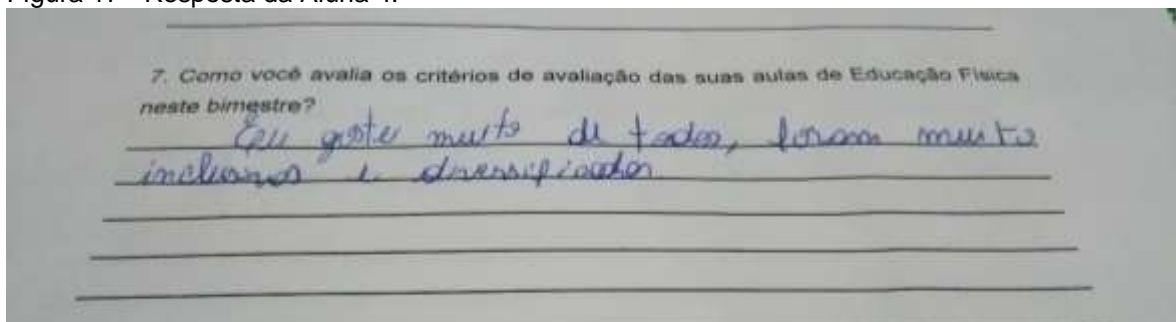 7. Como você avalia os critérios de avaliação das suas aulas de Educação Física
neste bimestre?
Eu gostei muito de todos, foram muito
inclusivos e diversificados